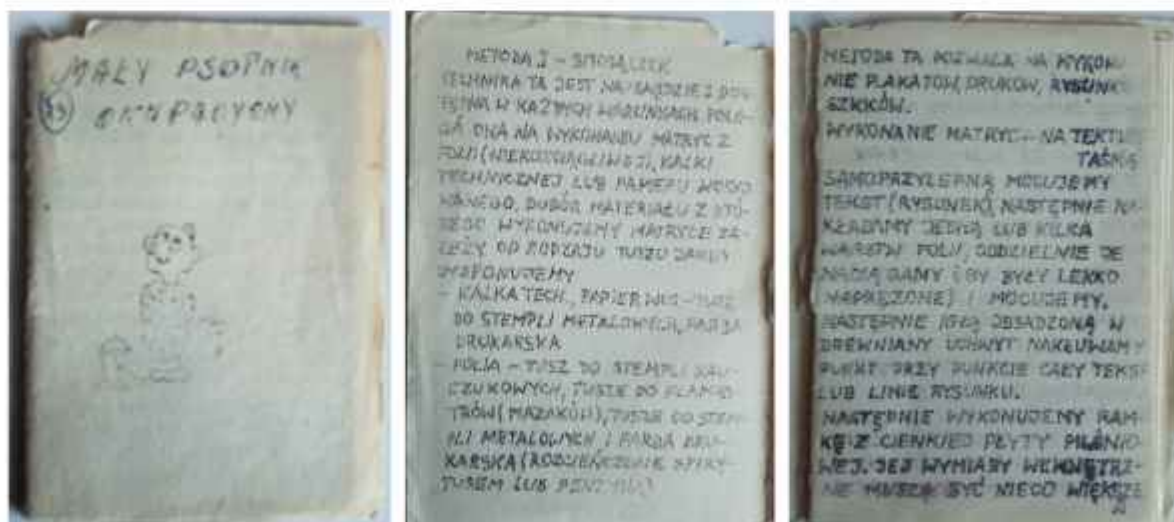 MAŁY PSOTNIK
OKUPACYJNY
METODA I -
TECHNIKA TA JEST NAJBARDZIEJ DOS-
TĘPNA W KAŻDYCH WARUNKACH. POLE-
GA ONA NA WYKONANIU MATRYC Z
FOLII (NIEROZCIĄGLIWEJ), KALKI
TECHNICZNEJ LUB PAPIERU WOSKO
WANEGO. DOBÓR MATERIAŁU Z KTÓ-
REGO WYKONUJEMY MATRYCE ZA-
LEŻY OD RODZAJU TUSZU JAKIM
DYSPONUJEMY
- KALKA TECH., PAPIER WOS - TUSZ
DO STEMPLI METALOWYCH, FARBA
DRUKARSKA
- FOLIA - TUSZ DO STEMPLI KAU-
CZUKOWYCH, TUSZE DO FLAMAS-
TRÓW (MAZAKÓW), TUSZE DO STEM-
PLI METALOWYCH I FARBA DRU-
KARSKA (ROZCIEŃCZENIE SPIRY-
TUSEM LUB BENZYNĄ)
METODA TA POZWALA NA WYKONA
NIE PLAKATÓW, DRUKÓW, RYSUNKÓ
SZKICÓW.
WYKONANIE MATRYC - NA TEKTU
TAŚMĄ
SAMOPRZYLEPNĄ MOCUJEMY
TEKST (RYSUNEK), NASTĘPNIE NA-
KŁADAMY JEDNĄ LUB KILKA
WARSTW FOLII, ODDZIELNIE JE
NACIĄGAMY (BY BYŁY LEKKO
NAPRĘŻONE) I MOCUJEMY.
NASTĘPNIE IGŁĄ OBSADZONĄ W
DREWNIANY UCHWYT NAKŁUWAMY
PUNKT PRZY PUNKCIE CAŁY TEKST
LUB LINIE RYSUNKU.
NASTĘPNIE WYKONUJEMY RAM-
KĘ Z CIENKIEJ PŁYTY PILŚNIO-
WEJ. JEJ WYMIARY WEWNĘTRZ-
NE MUSZĄ BYĆ NIECO WIĘKSZE